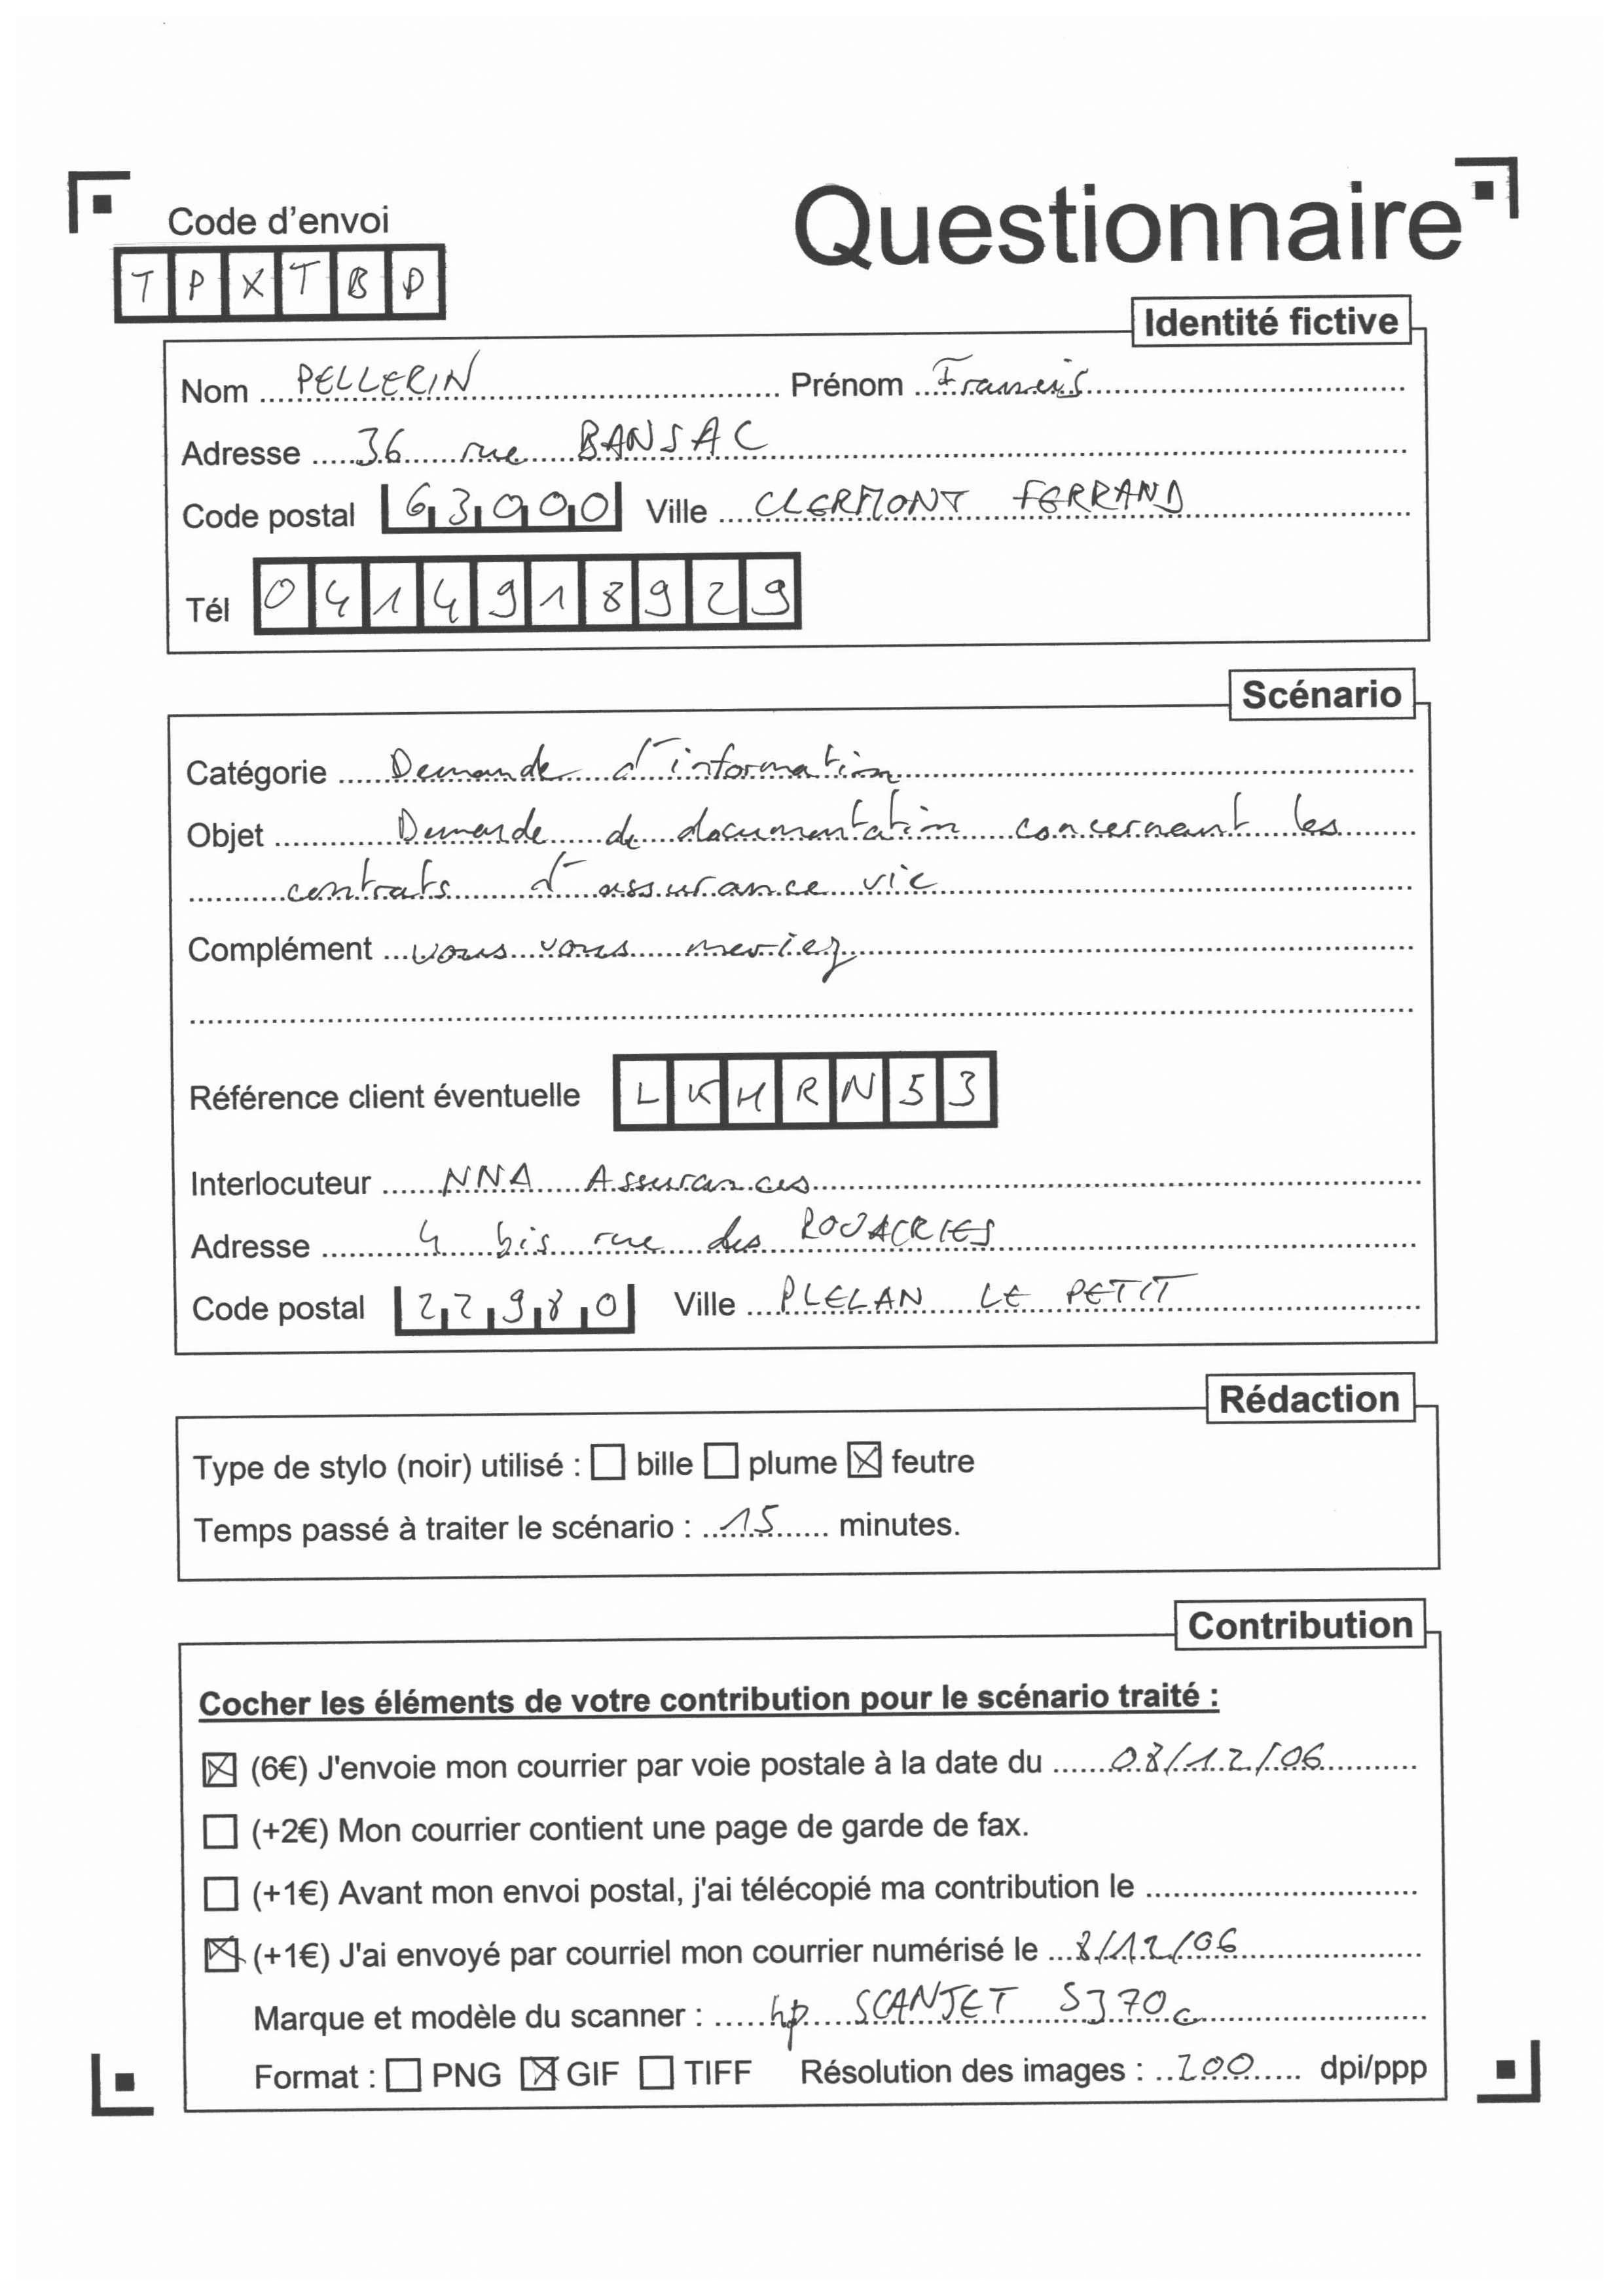 Code d'envoi
Questionnaire
T P X T B D
Identité fictive
Nom PELLERIN Prénom Francis
Adresse 36 rue BANSAC
Code postal 63000 Ville CLERMONT FERRAND
Tél 0414918929
Scénario
Catégorie Demande d'information
Objet Demande de documentation concernant les
contrats d'assurance vie
Complément vous vous mariez
Référence client éventuelle LKHRN53
Interlocuteur NNA Assurances
Adresse 4 bis rue des
Code postal 22980 Ville PLELAN LE PETIT
Rédaction
Type de stylo (noir) utilisé : ☐ bille ☐ plume ☒ feutre
Temps passé à traiter le scénario : 15 minutes.
Contribution
Cocher les éléments de votre contribution pour le scénario traité :
☒ (6€) J'envoie mon courrier par voie postale à la date du 08/12/06
☐ (+2€) Mon courrier contient une page de garde de fax.
☐ (+1€) Avant mon envoi postal, j'ai télécopié ma contribution le
☒ (+1€) J'ai envoyé par courriel mon courrier numérisé le 8/12/06
Marque et modèle du scanner : hp SCANJET 5370c
Format : ☐ PNG ☒ GIF ☐ TIFF Résolution des images : 200 dpi/ppp